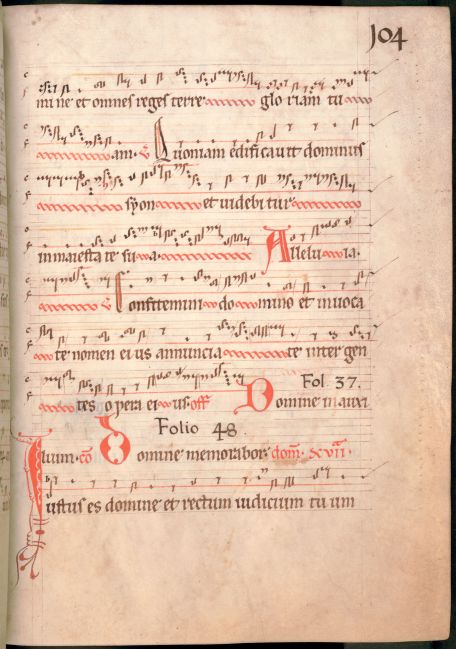 104
mine et omnes reges terre gloriam tu
am. Quoniam edificavit dominus
syon et videbitur
in maiestate sua. Alleluia.
Confitemini domino et invoca
te nomen eius annuncia te inter gen
tes opera eius off Domine in auxi
Fol. 37.
Folio 48.
lium. co Domine memorabor dom. xvii.
Iustus es domine et rectum iudicium tuum